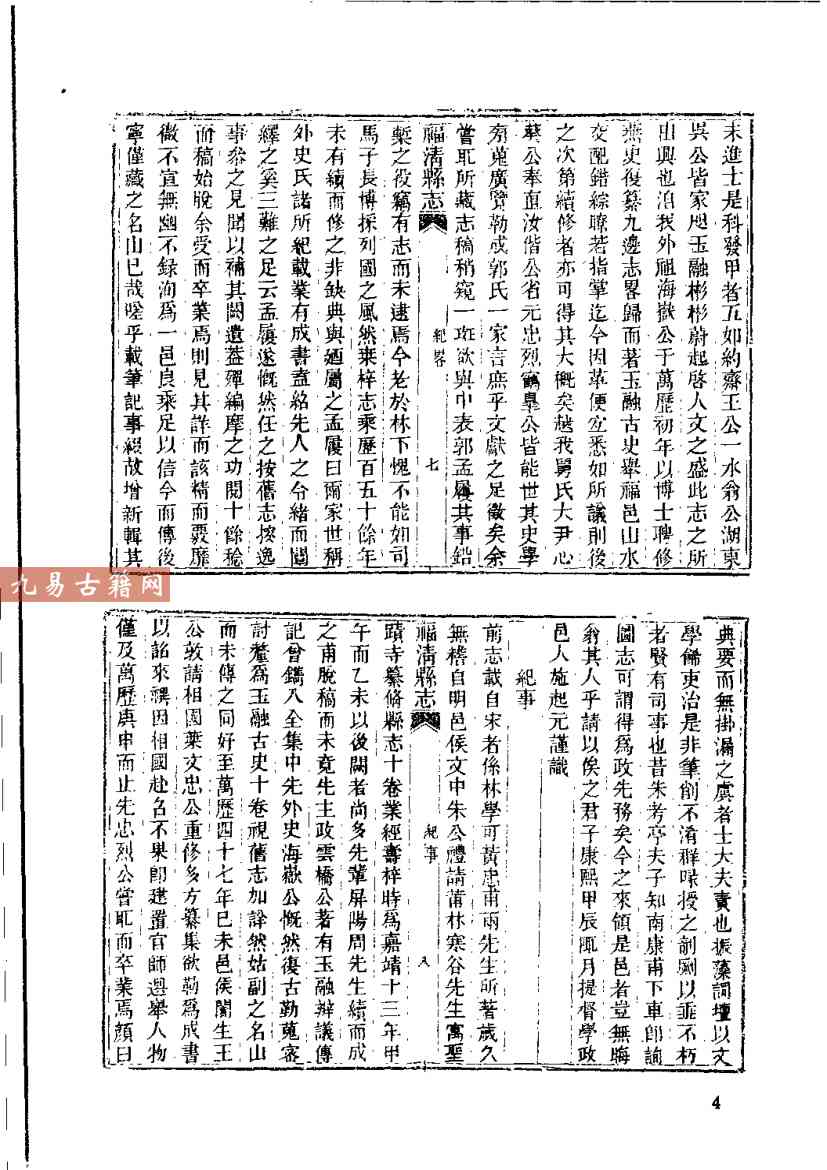 未進士是科發甲者五如約齋王公一水翁公湖東
吳公皆家咫玉融彬彬蔚起啓人文之盛此志之所
由興也洎我外祖海嶽公于萬歷初年以博士聘修
燕史復纂九邊志畧歸而著玉融古史舉福邑山水
交配錯綜瞭若指掌迄今因革便宜悉如所議則後
之次第續修者亦可得其大概矣越我舅氏大尹心
葵公奉直汝偕公省元忠烈公皆能世其史學
旁蒐廣覽勒成郭氏一家言庶乎文獻之足徵矣余
嘗取所藏志稿稍窺一斑欲與中表郭孟履共事鉛
福清縣志 紀畧 七
槧之役竊有志而未逮焉今老於林下愧不能如司
馬子長博採列國之風然桒梓志乘歷百五十餘年
未有續而修之非缺典與廼屬之孟履曰爾家世稱
外史氏諸所紀載業有成書盍紹先人之令緒而闡
繹之奚三難之足云孟履遂慨然任之按舊志按逸
事叅之見聞以補其闕遺葢殫編摩之功閱十餘稔
而稿始脫余受而卒業焉則見其詳而該精而覈靡
微不宣無幽不録洵爲一邑良乘足以信今而傳後
寧僅藏之名山已哉噯乎載筆記事綴故增新輯其
典要而無掛漏之虞者士大夫責也振藻詞壇以文
學餙吏治是非筆削不淆群喙授之剞劂以垂不朽
者賢有司事也昔朱考亭夫子知南康甫下車卽詢
圖志可謂得爲政先務矣今之來領是邑者豈無晦
翁其人乎請以俟之君子康熙甲辰陬月提督學政
邑人施起元謹識
紀事
前志載自宋者係林學可黃忠甫兩先生所著歲久
無稽自明邑侯文中朱公禮請莆林寒谷先生寓聖
福清縣志 紀事 八
蹟寺纂修縣志十卷業經壽梓時爲嘉靖十三年甲
午而乙未以後闕者尚多先軰屏陽周先生續而成
之甫脫稿而未竟先主政雲橋公著有玉融辯議傳
記曾鐫入全集中先外史海嶽公慨然復古勤蒐審
討釐爲玉融古史十卷視舊志加詳然姑副之名山
而未傳之同好至萬歷四十七年巳未邑侯闇生王
公敦請相國葉文忠公重修多方纂集欲勒爲成書
以詔來禩因相國赴召不果卽建置官師選舉人物
僅及萬歷庚申而止先忠烈公嘗取而卒業焉顏曰
九易古籍网
4